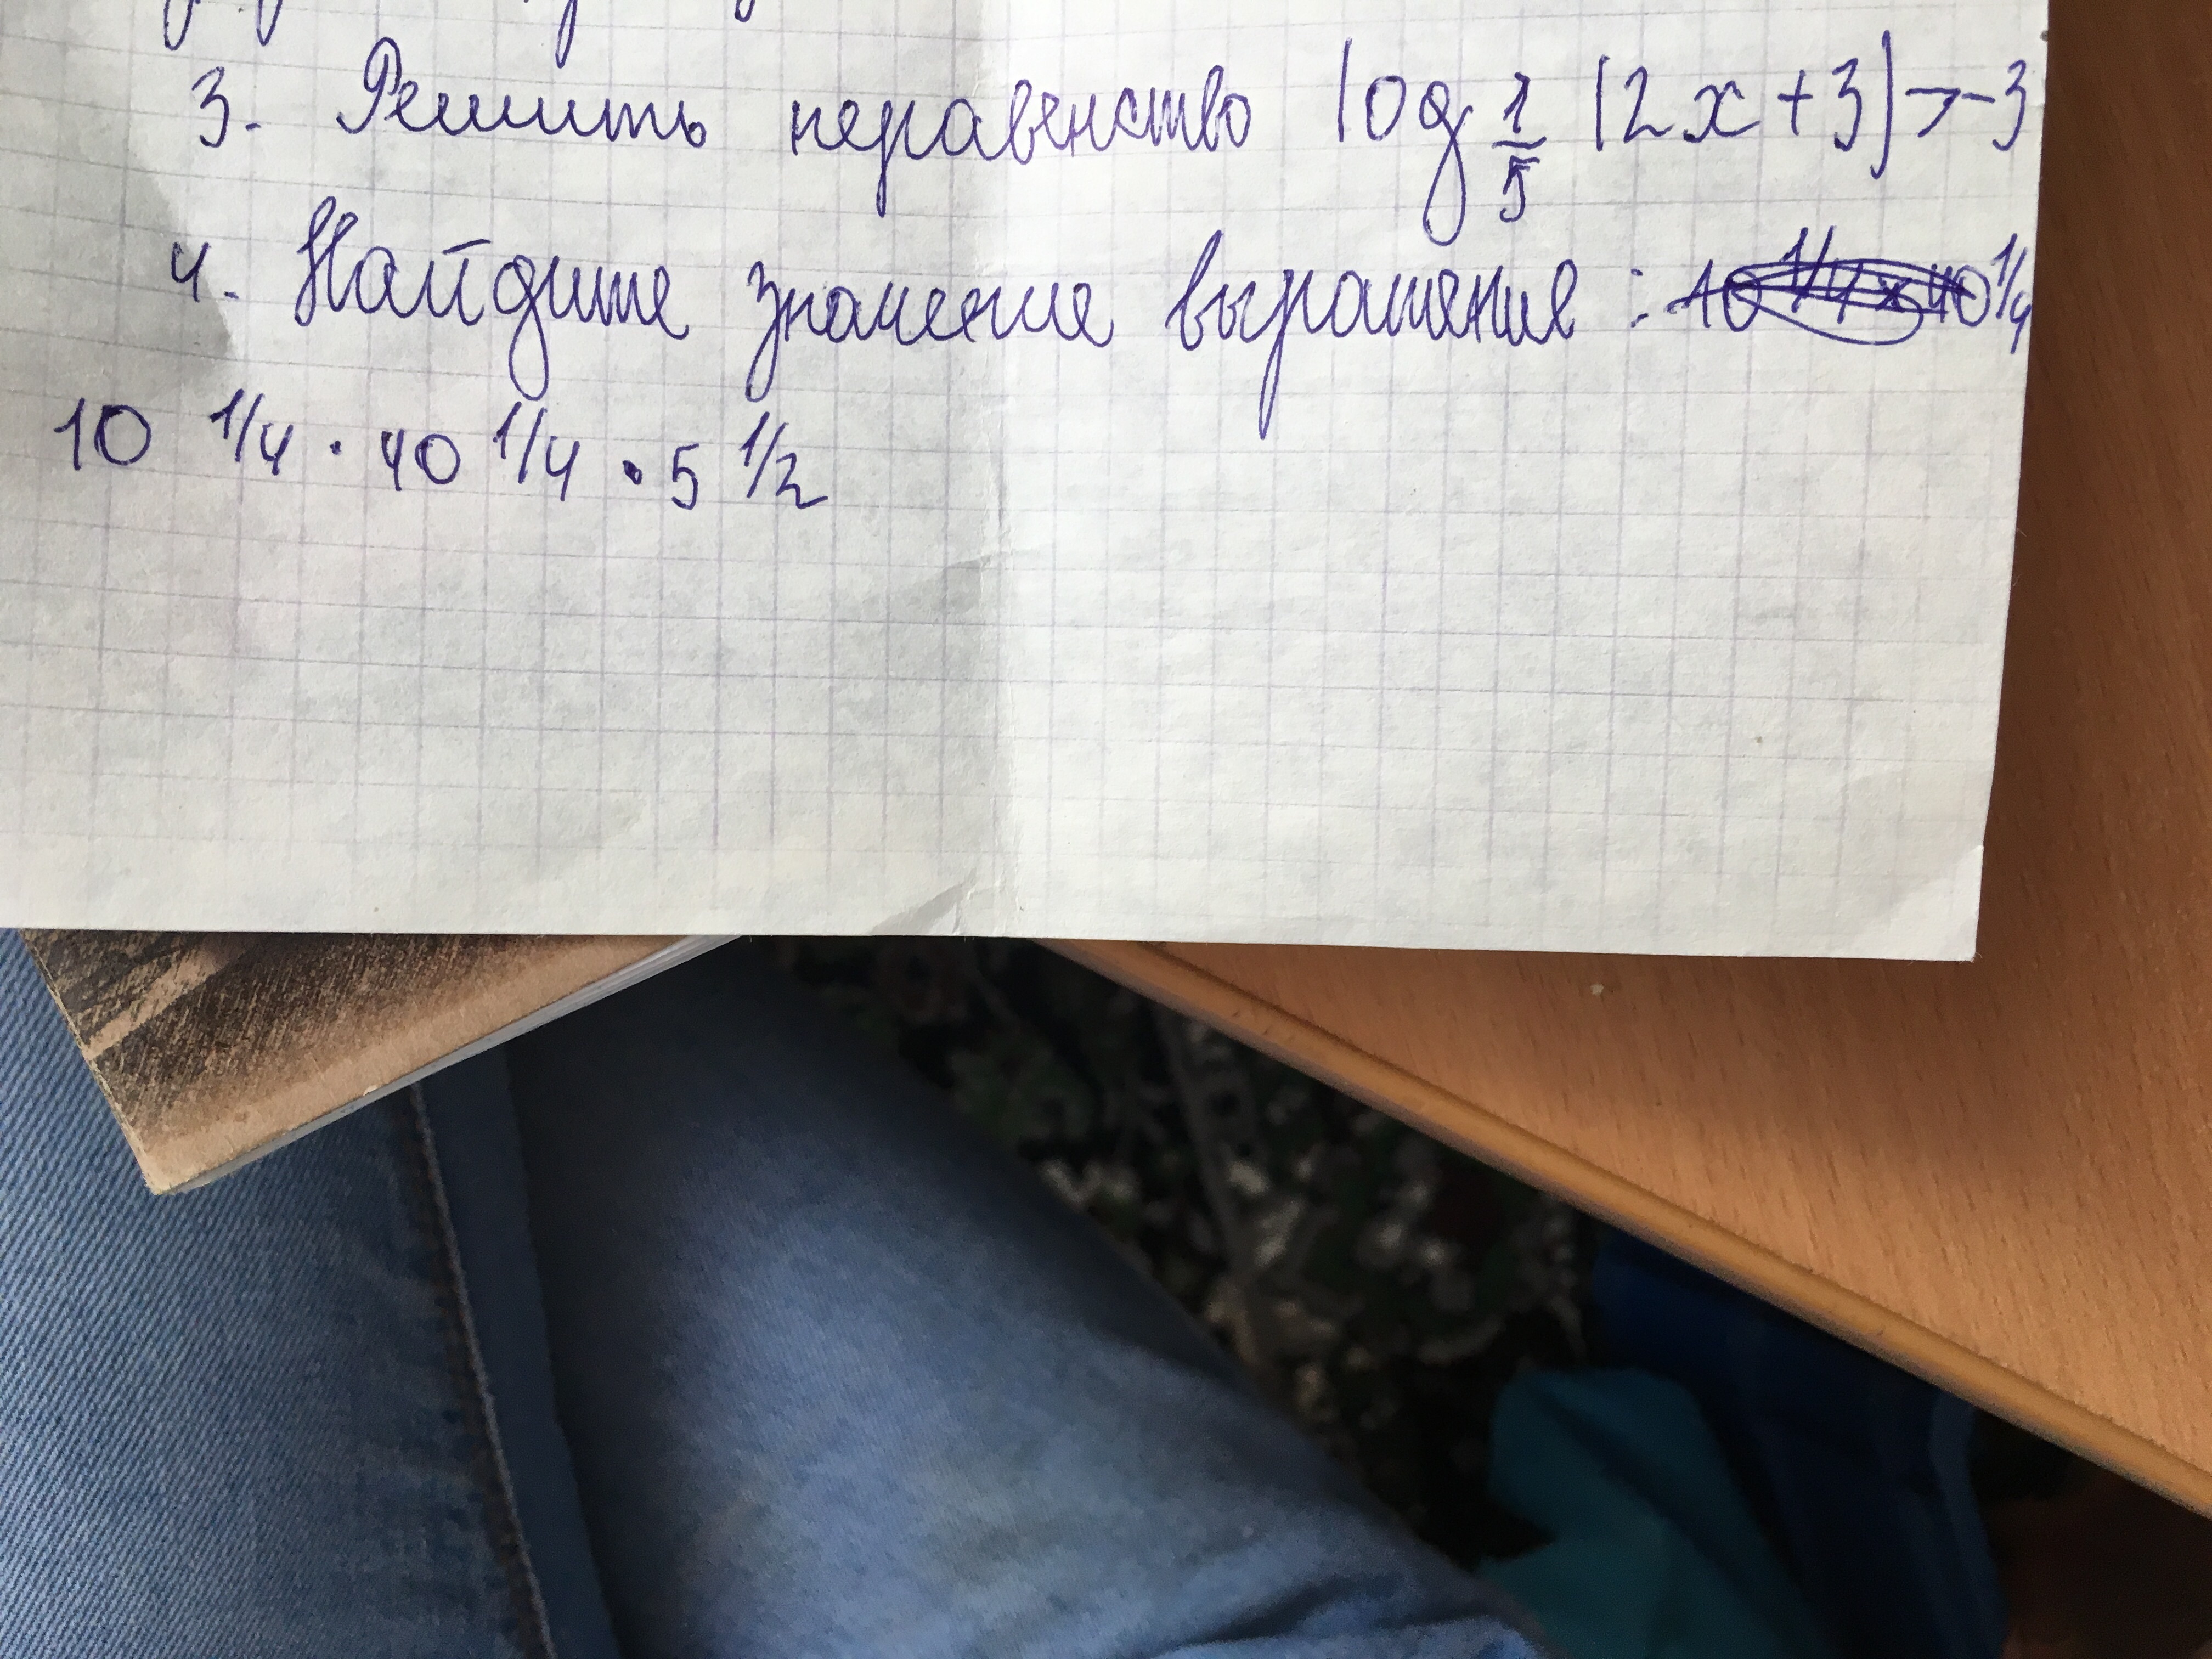 3. Решить неравенство log 1/5 (2x+3)>-3
4. Найдите значение выражения : 10 1/4 x 40 1/4
10 1/4 · 40 1/4 · 5 1/2